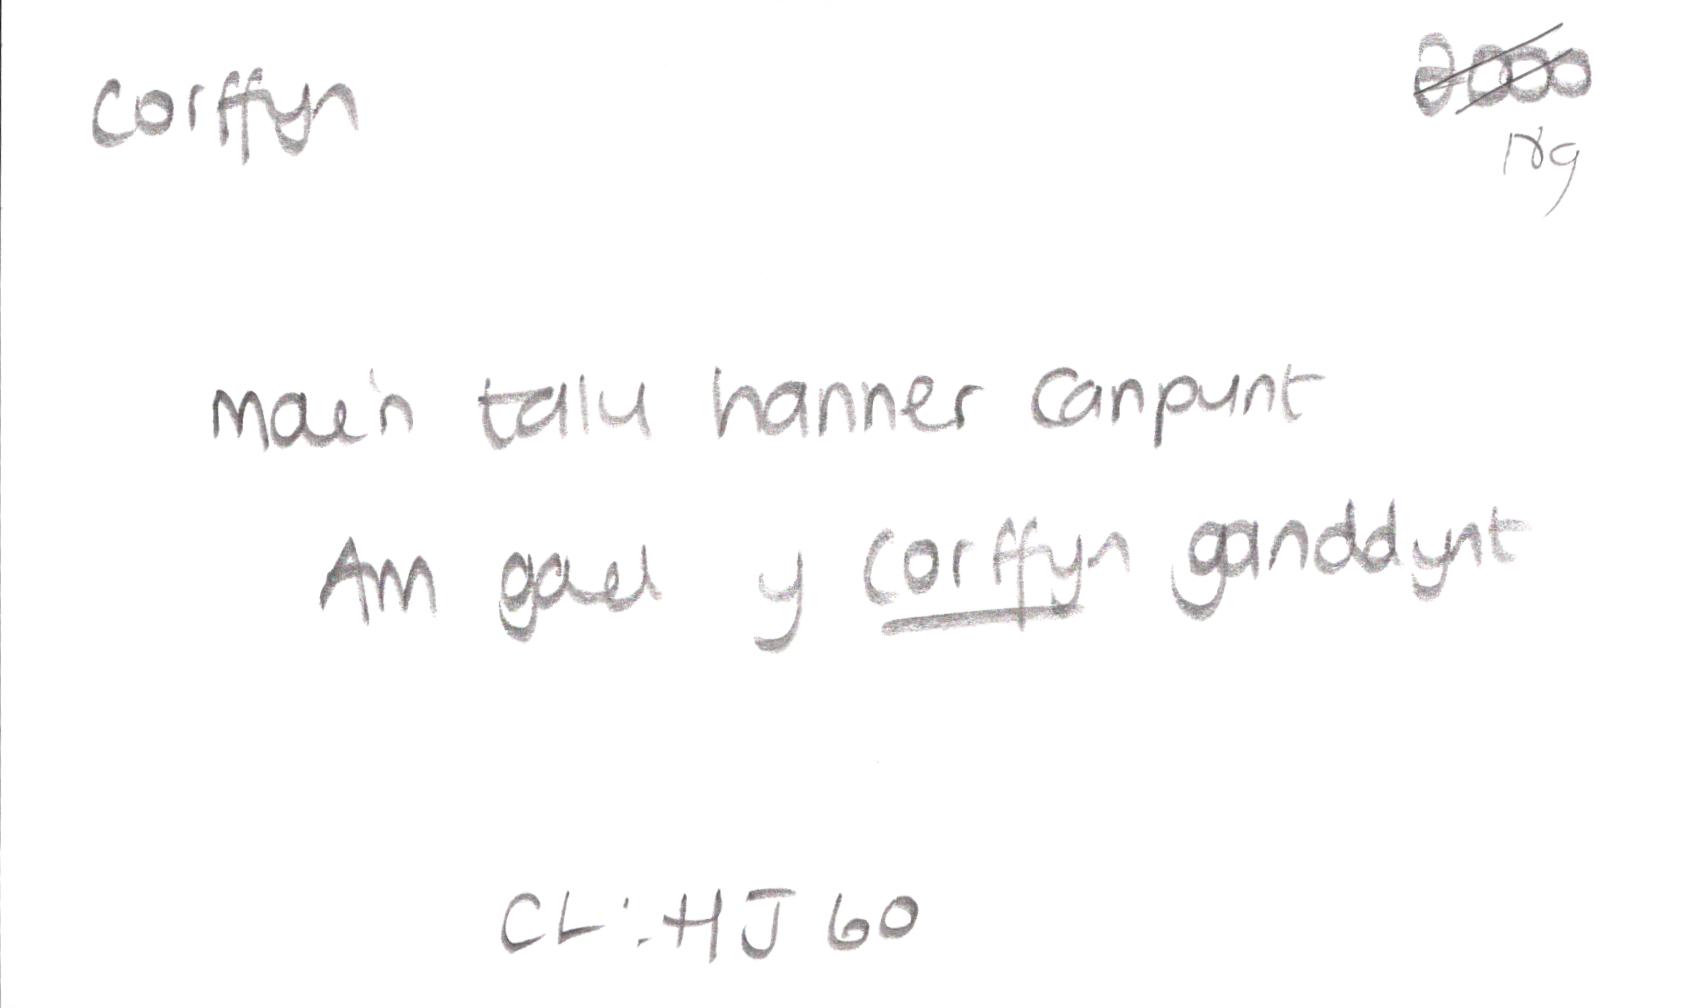 Corffyn
2000
18g
Mae'n talu hanner Canpunt
Am gael y Corffyn ganddynt
CL: HJ 60